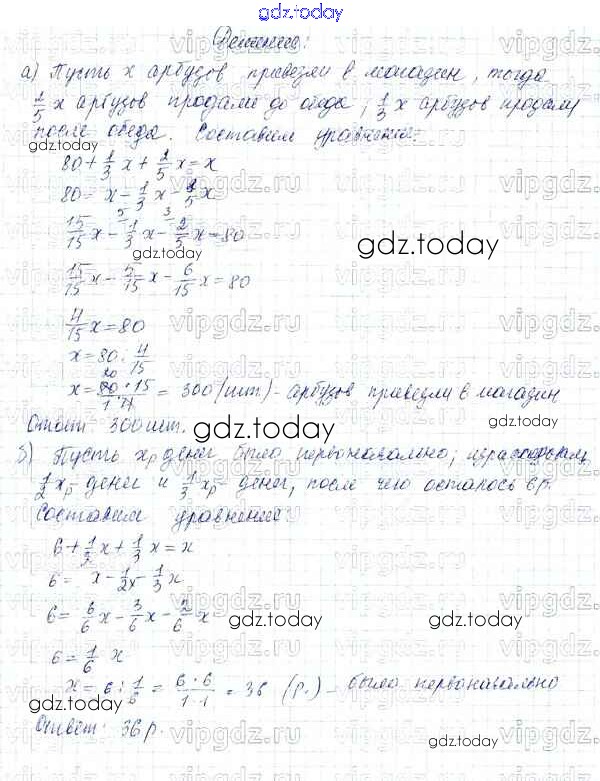 gdz.today
Решение:
а) Пусть x арбузов привезли в магазин, тогда
2/5 x арбузов продали до обеда, 1/3 x арбузов продали
после обеда. Составим уравнение:
80+1/3x+2/5x=x
80=x-1/3x-2/5x
15/15x-1/3x-2/5x=80
gdz.today
gdz.today
15/15x-5/15x-6/15x=80
4/15x=80
x=80:4/15
x=80·15/1·4=300(шт.)-арбузов привезли в магазин
gdz.today
Ответ: 300шт.
gdz.today
б) Пусть xр денег было первоначально, израсходовали
1/2xр-денег и 1/3xр-денег, после чего осталось 6р.
Составим уравнение:
6+1/2x+1/3x=x
6=x-1/2x-1/3x
6=6/6x-3/6x-2/6x
gdz.today
gdz.today
6=1/6x
x=6:1/6=6·6/1·1=36 (р.)-было первоначально
Ответ: 36р.
gdz.today
vipgdz.ru